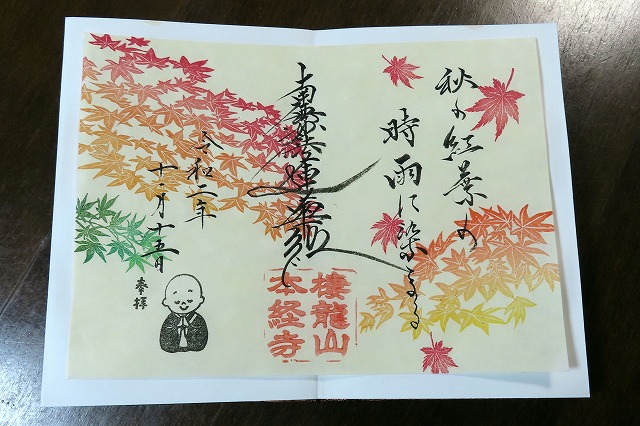 秋の紅葉の
時雨に染まる
南無妙法蓮華経
棲龍山
本経寺
令和二年
十一月十五日
奉拝